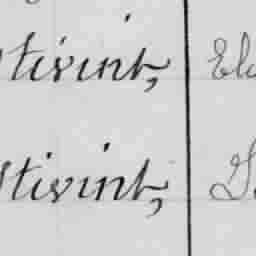 Stivint, El
Stivint,